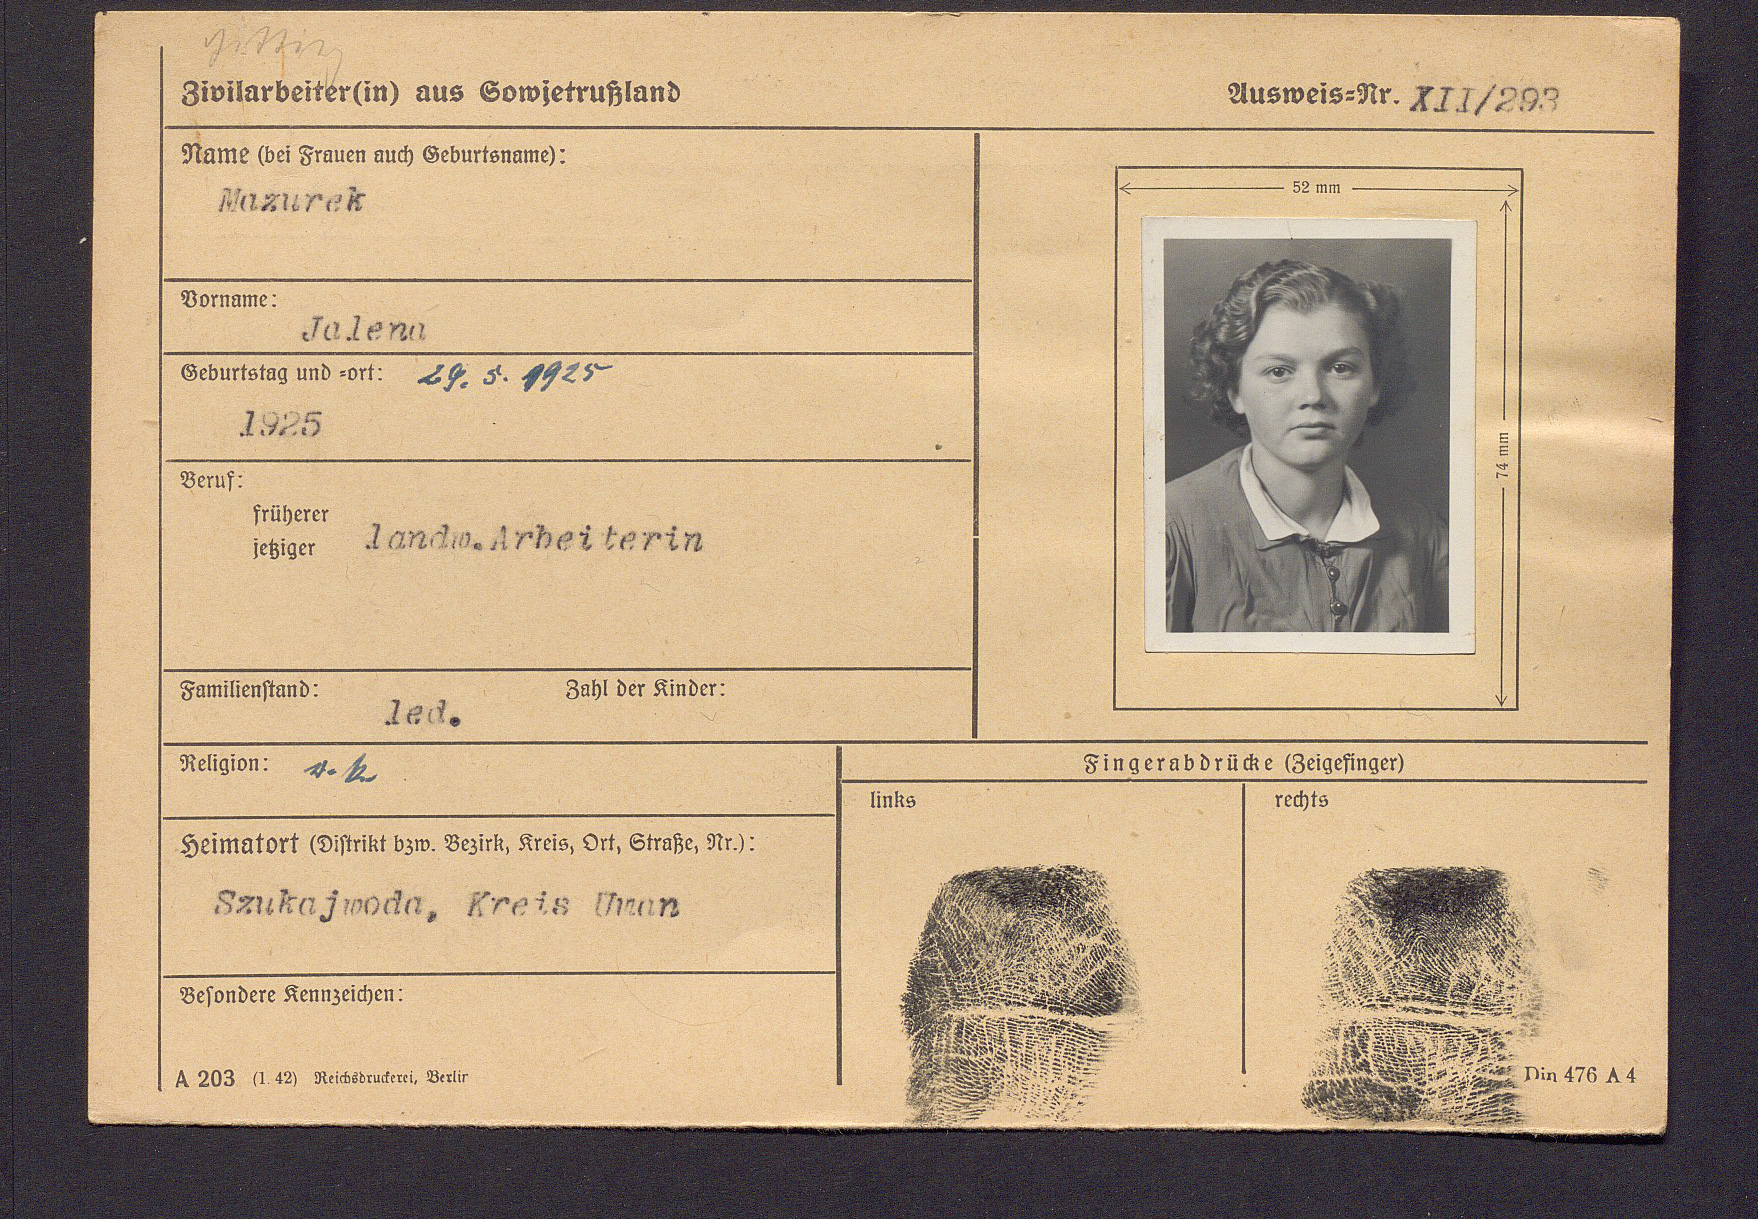 Zivilarbeiter(in) aus Sowjetrußland
Ausweis=Nr. XII/293
Name (bei Frauen auch Geburtsname):
Mazurek
Vorname:
Jalena
Geburtstag und =ort: 29. 5. 1925
1925
Beruf:
früherer
jetziger landw.Arbeiterin
Familienstand: led.
Zahl der Kinder:
Religion:
Heimatort (Distrikt bzw. Bezirk, Kreis, Ort, Straße, Nr.):
Szukajwoda, Kreis Uman
Besondere Kennzeichen:
A 203 (1. 42) Reichsdruckerei, Berlin
52 mm
74 mm
Fingerabdrücke (Zeigefinger)
links
rechts
Din 476 A 4